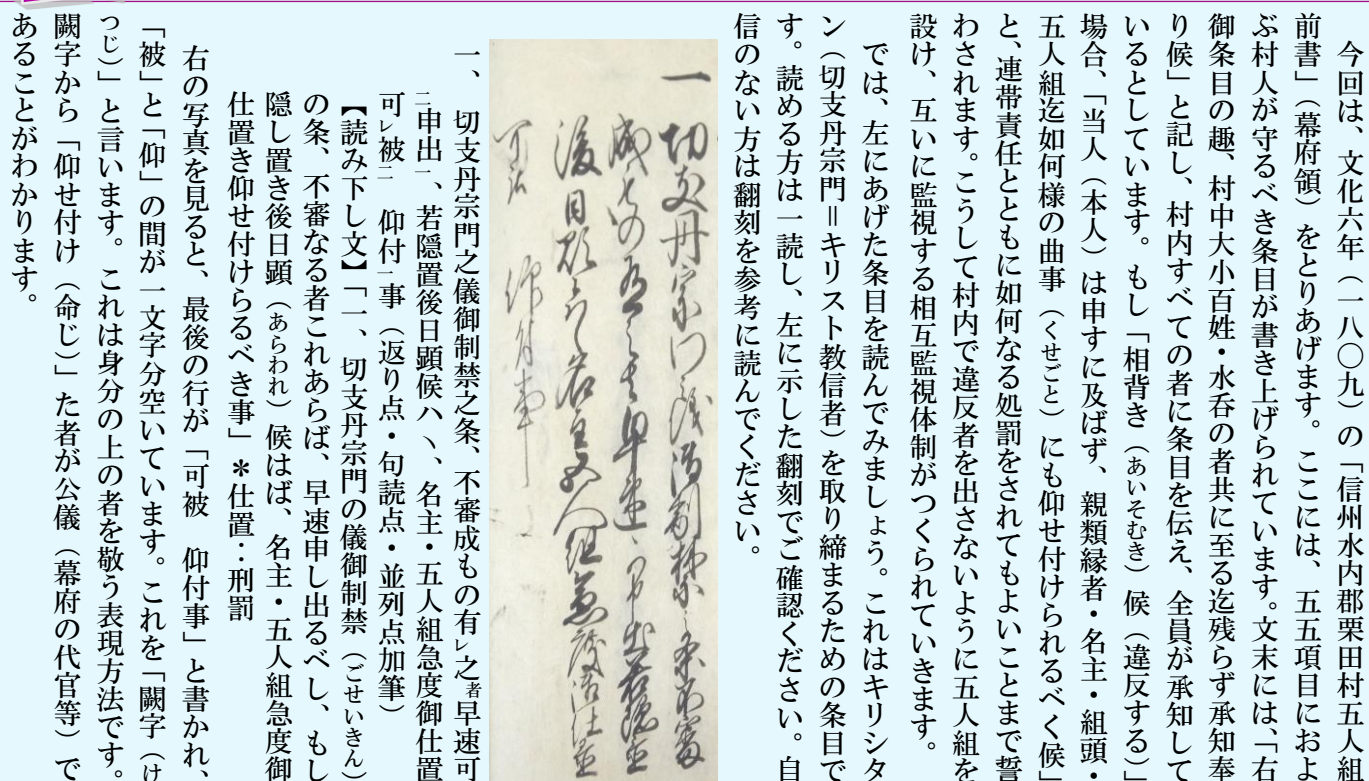 今回は、文化六年（一八〇九）の「信州水内郡栗田村五人組
前書」（幕府領）をとりあげます。ここには、五五項目におよ
ぶ村人が守るべき条目が書き上げられています。文末には、「右
御条目の趣、村中大小百姓・水呑の者共に至る迄残らず承知奉
り候」と記し、村内すべての者に条目を伝え、全員が承知して
いるとしています。もし「相背き（あいそむき）候（違反する）」
場合、「当人（本人）は申すに及ばず、親類縁者・名主・組頭・
五人組迄如何様の曲事（くせごと）にも仰せ付けられるべく候」
と、連帯責任とともに如何なる処罰をされてもよいことまで誓
わされます。こうして村内で違反者を出さないように五人組を
設け、互いに監視する相互監視体制がつくられていきます。
では、左にあげた条目を読んでみましょう。これはキリシタ
ン（切支丹宗門＝キリスト教信者）を取り締まるための条目で
す。読める方は一読し、左に示した翻刻でご確認ください。自
信のない方は翻刻を参考に読んでください。
一 切支丹宗門之儀御制禁之条不審
成もの有之者早速可申出若隠置
後日顕候ハヽ名主五人組急度御仕置
可被　仰付事
一、切支丹宗門之儀御制禁之条、不審成もの有レ之者早速可
二申出一、若隠置後日顕候ハヽ、名主・五人組急度御仕置
可レ被二　仰付一事（返り点・句読点・並列点加筆）
【読み下し文】「一、切支丹宗門の儀御制禁（ごせいきん）
の条、不審なる者これあらば、早速申し出るべし、もし
隠し置き後日顕（あらわれ）候はば、名主・五人組急度御
仕置き仰せ付けらるべき事」＊仕置：刑罰
右の写真を見ると、最後の行が「可被　仰付事」と書かれ、
「被」と「仰」の間が一文字分空いています。これを「闕字（け
つじ）」と言います。これは身分の上の者を敬う表現方法です。
闕字から「仰せ付け（命じ）」た者が公儀（幕府の代官等）で
あることがわかります。